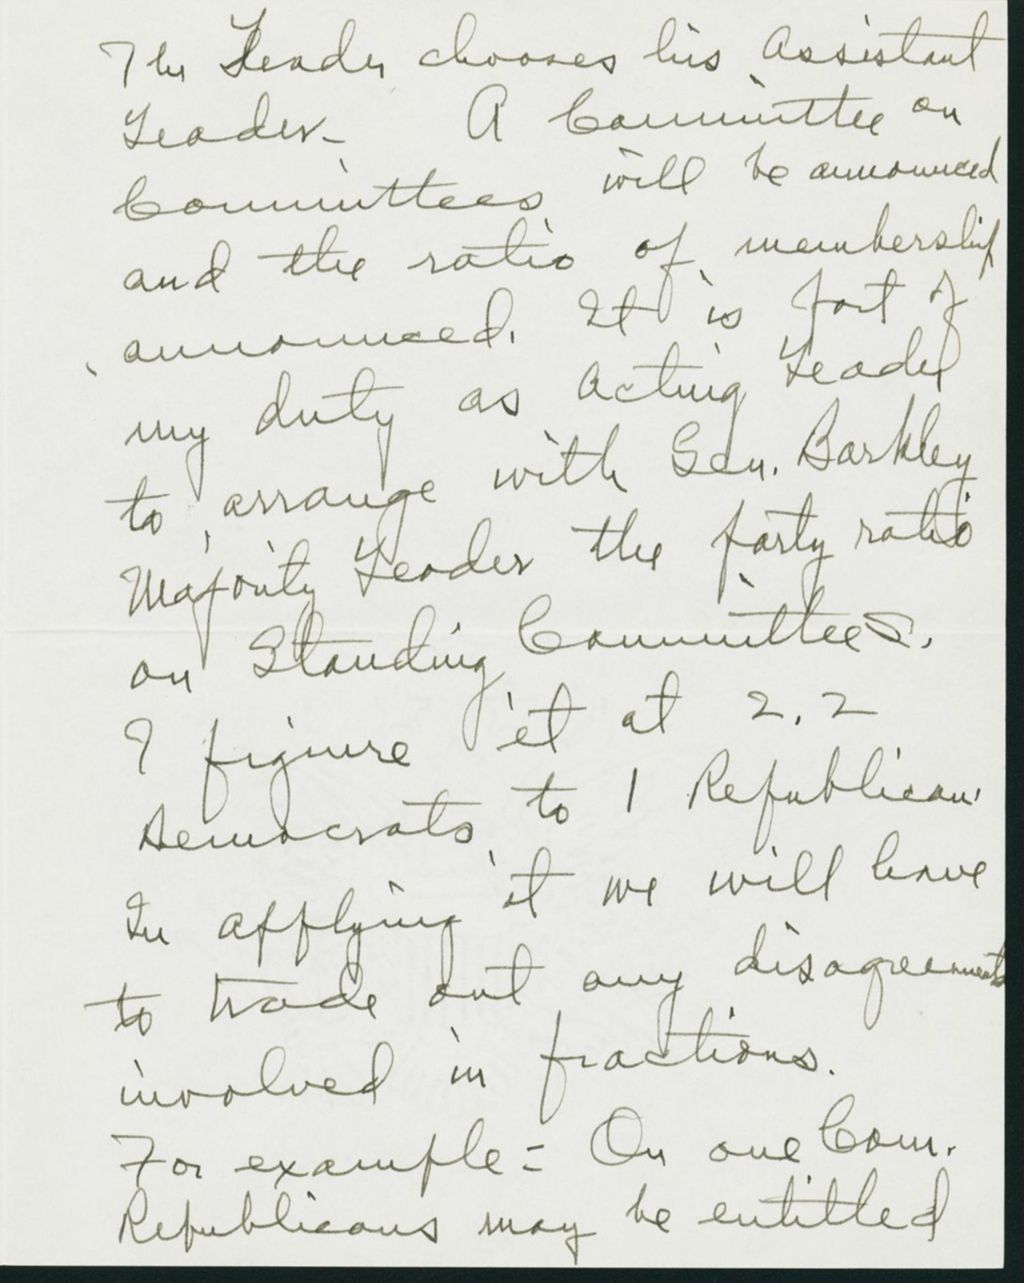 The Leader chooses his Assistant
Leader - A Committee on
Committees will be announced
and the ratio of membership
announced. It is part of
my duty as Acting Leader
to arrange with Sen. Barkley
Majority Leader the party ratio
on Standing Committees.
I figure it at 2.2
Democrats to 1 Republican.
In applying it we will have
to trade out any disagreements
involved in fractions.
For example = On one Com.
Republicans may be entitled